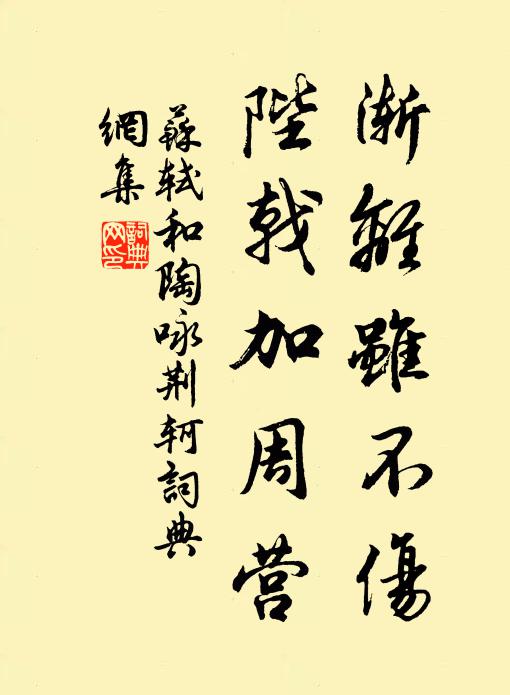 漸離雖不傷
陛戟加周营
蘇轼和陶咏荆轲詞典
網集
詞典
网印